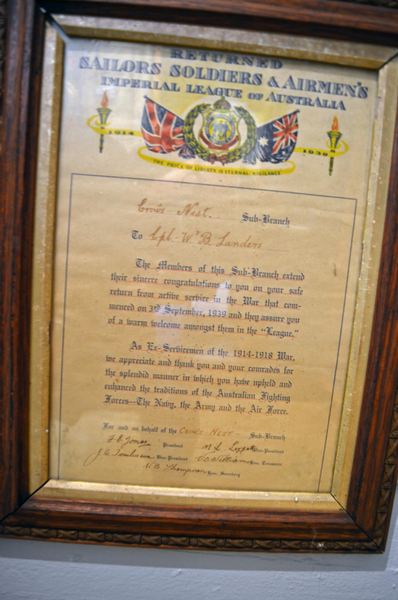 RETURNED
SAILORS SOLDIERS & AIRMEN'S
IMPERIAL LEAGUE OF AUSTRALIA
1914
1939
THE PRICE OF LIBERTY IS ETERNAL VIGILANCE
Crow's Nest. Sub-Branch
To Cpl. W. B. Landers
The Members of this Sub-Branch extend
their sincere congratulations to you on your safe
return from active service in the War that com-
menced on 3rd September, 1939 and they assure you
of a warm welcome amongst them in the "League."
As Ex-Servicemen of the 1914-1918 War,
we appreciate and thank you and your comrades for
the splendid manner in which you have upheld and
enhanced the traditions of the Australian Fighting
Forces—The Navy, the Army and the Air Force.
For and on behalf of the Crows Nest Sub-Branch
President Vice-President
Vice-President Hon. Treasurer
Thompson Hon. Secretary